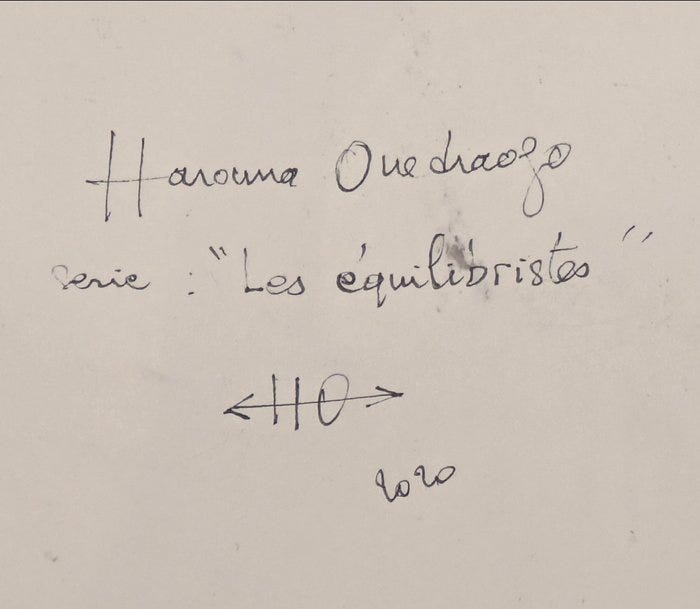 Harouna Ouedraogo
serie : "Les équilibristes"
HO
2020